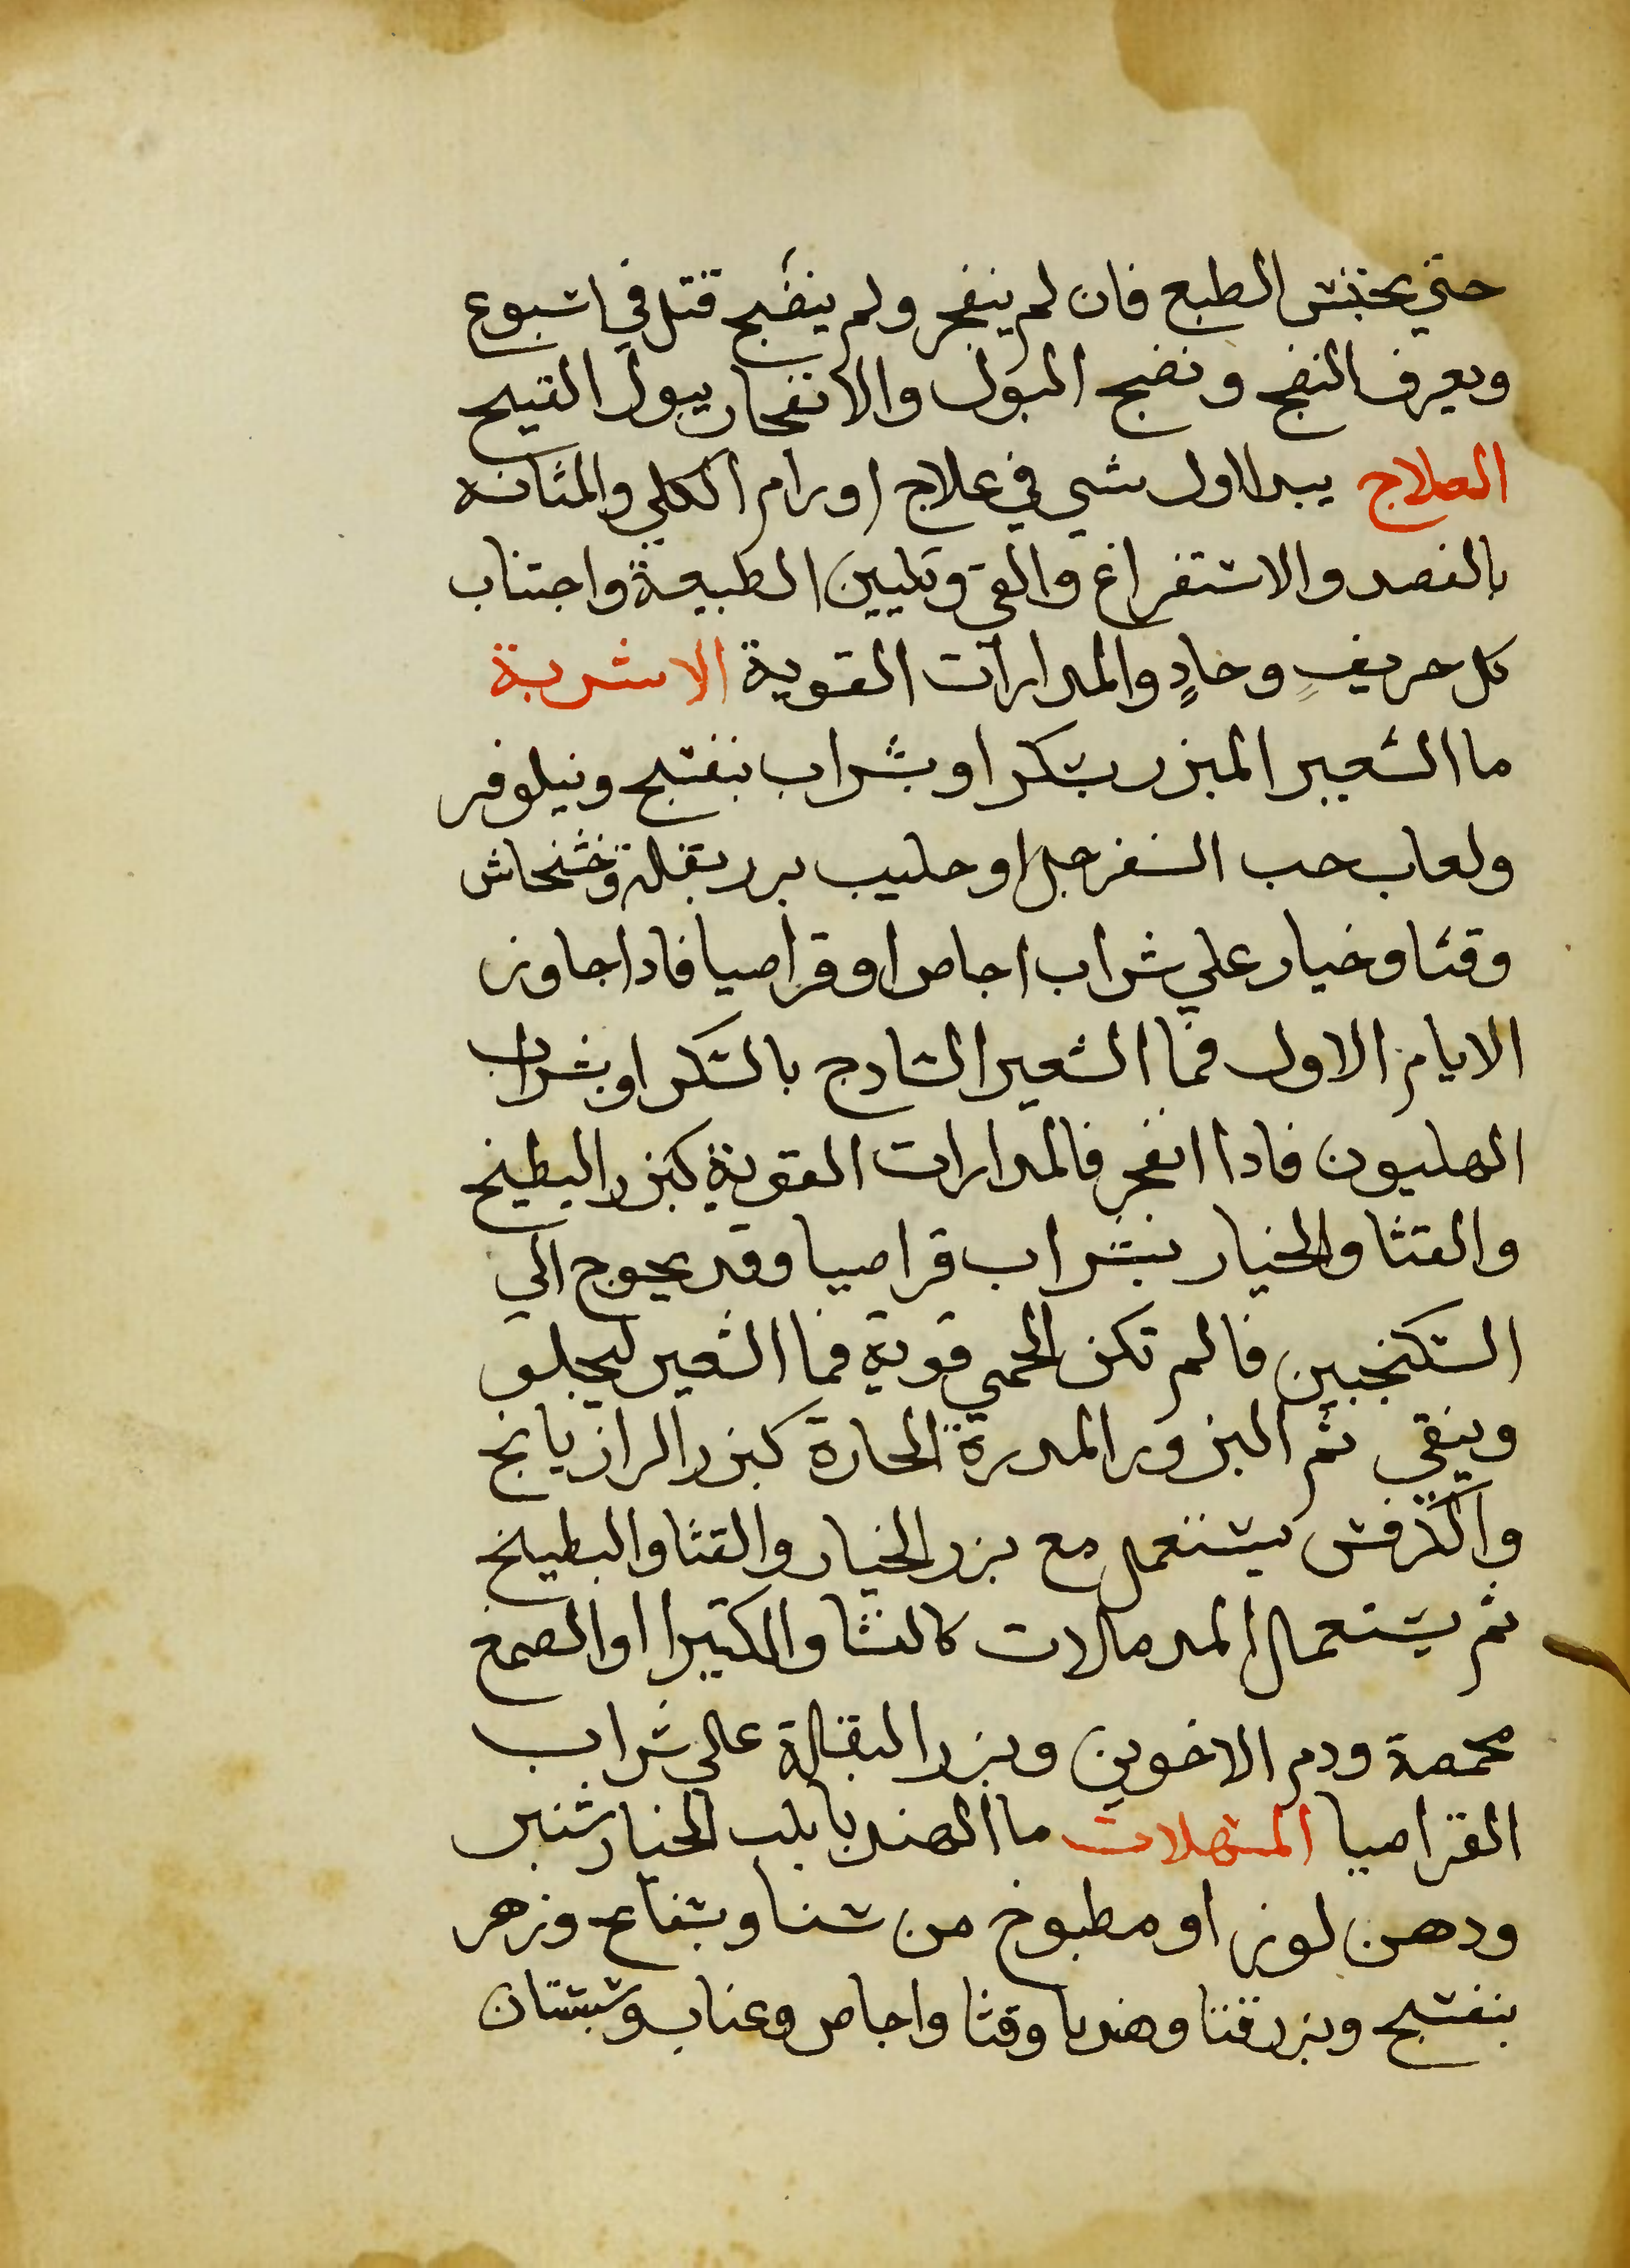 حتي يحتبس الطبع فان لم ينفجر ولم ينضج قتل في اسبوع
ويعرف النضج ونضج البول والانفجار ببول القيح
العلاج يبدا اول شي في علاج اورام الكلي والمثانه
بالفصد والاستفراغ والقي وتليين الطبيعة واجتناب
كل حريفٍ وحادٍ والمدارات القوية الاشربة
ما الشعير المبزر بسكر او بشراب بنفسج ونيلوفر
ولعاب حب السفرجل او حليب بزر بقلة وخشخاش
وقثا وخيار علي شراب اجاص او قراصيا فاداجاوز
الايام الاول فما الشعير السادج بالسكر او بشراب
الهليون فادا انفجر فالمدارات القوية كبزر البطيخ
والقثا والخيار بشراب قراصيا وقد يحوج الي
السكنجبين فالم تكن الحمي قوية فما الشعير ليجلو
وينقي ثم البزور المدرة الحارة كبزر الرازيانج
والكرفس يستعمل مع بزر الخيار والقثا والبطيخ
ثم يستعمل المدملات كالنشا والكثيرا والصمغ
محمصة ودم الاخوين وبزر البقلة علي شراب
القراصيا المسهلات ما الهندبا بلب الخيار شنبر
ودهن لوز او مطبوخ من سنا وبسفاع وزهر
بنفسج وبزر قثا وهندبا وقثا واجاص وعناب وسبستان